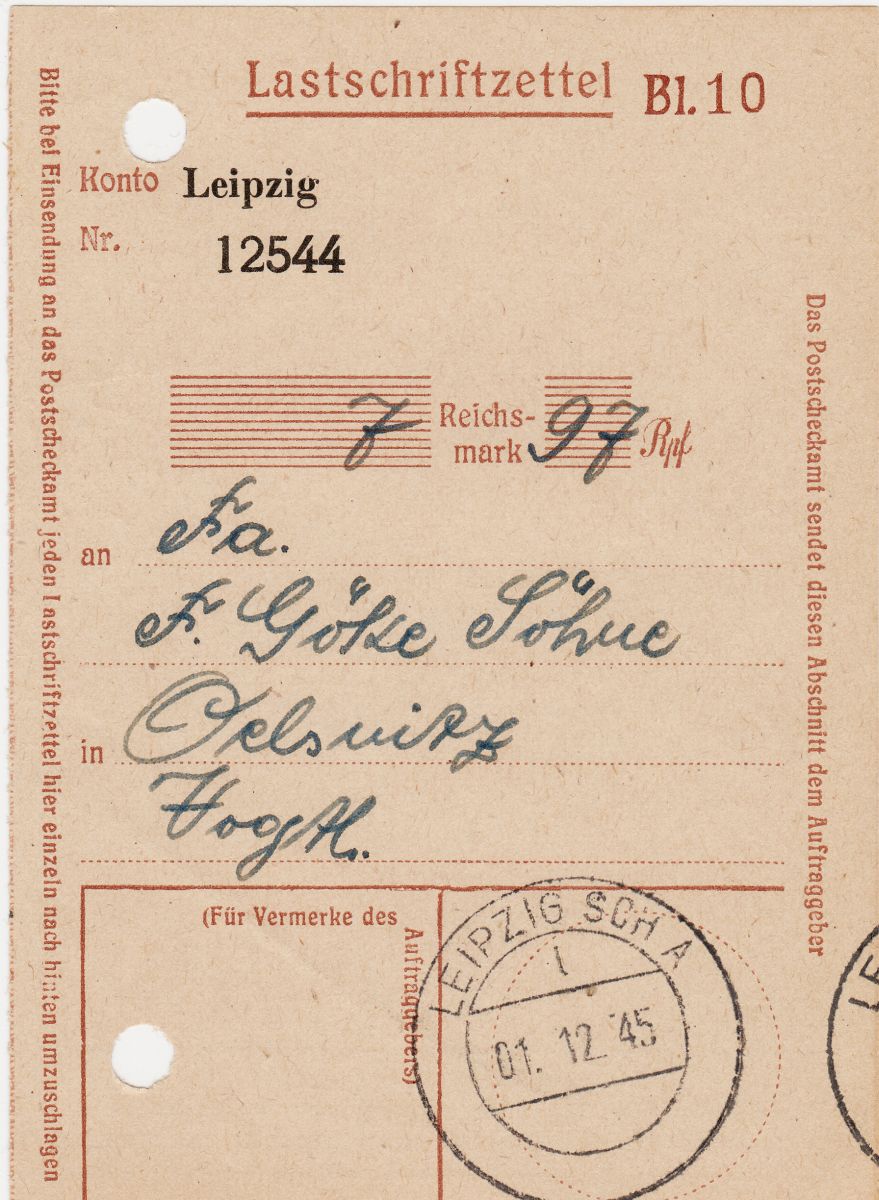 Lastschriftzettel Bl. 10
Konto Leipzig
Nr. 12544
7 Reichs-
mark 97 Rpf
an Fa.
F. Götze Söhne
in Oelsnitz
Vogtl.
(Für Vermerke des
Auftraggebers)
LEIPZIG SCH A
01. 12. 45
Bitte bei Einsendung an das Postscheckamt jeden Lastschriftzettel hier einzeln nach hinten umzuschlagen
Das Postscheckamt sendet diesen Abschnitt dem Auftraggeber
LE